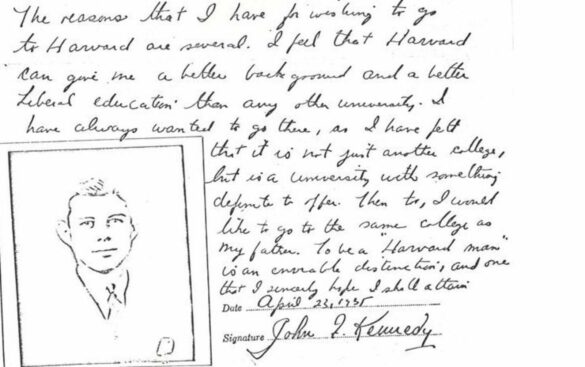 The reasons that I have for wishing to go
to Harvard are several. I feel that Harvard
can give me a better background and a better
liberal education than any other university. I
have always wanted to go there, as I have felt
that it is not just another college,
but is a university with something
definite to offer. Then too, I would
like to go to the same college as
my father. To be a "Harvard man"
is an enviable distinction, and one
that I sincerely hope I shall attain
Date April 23, 1935
Signature John F. Kennedy